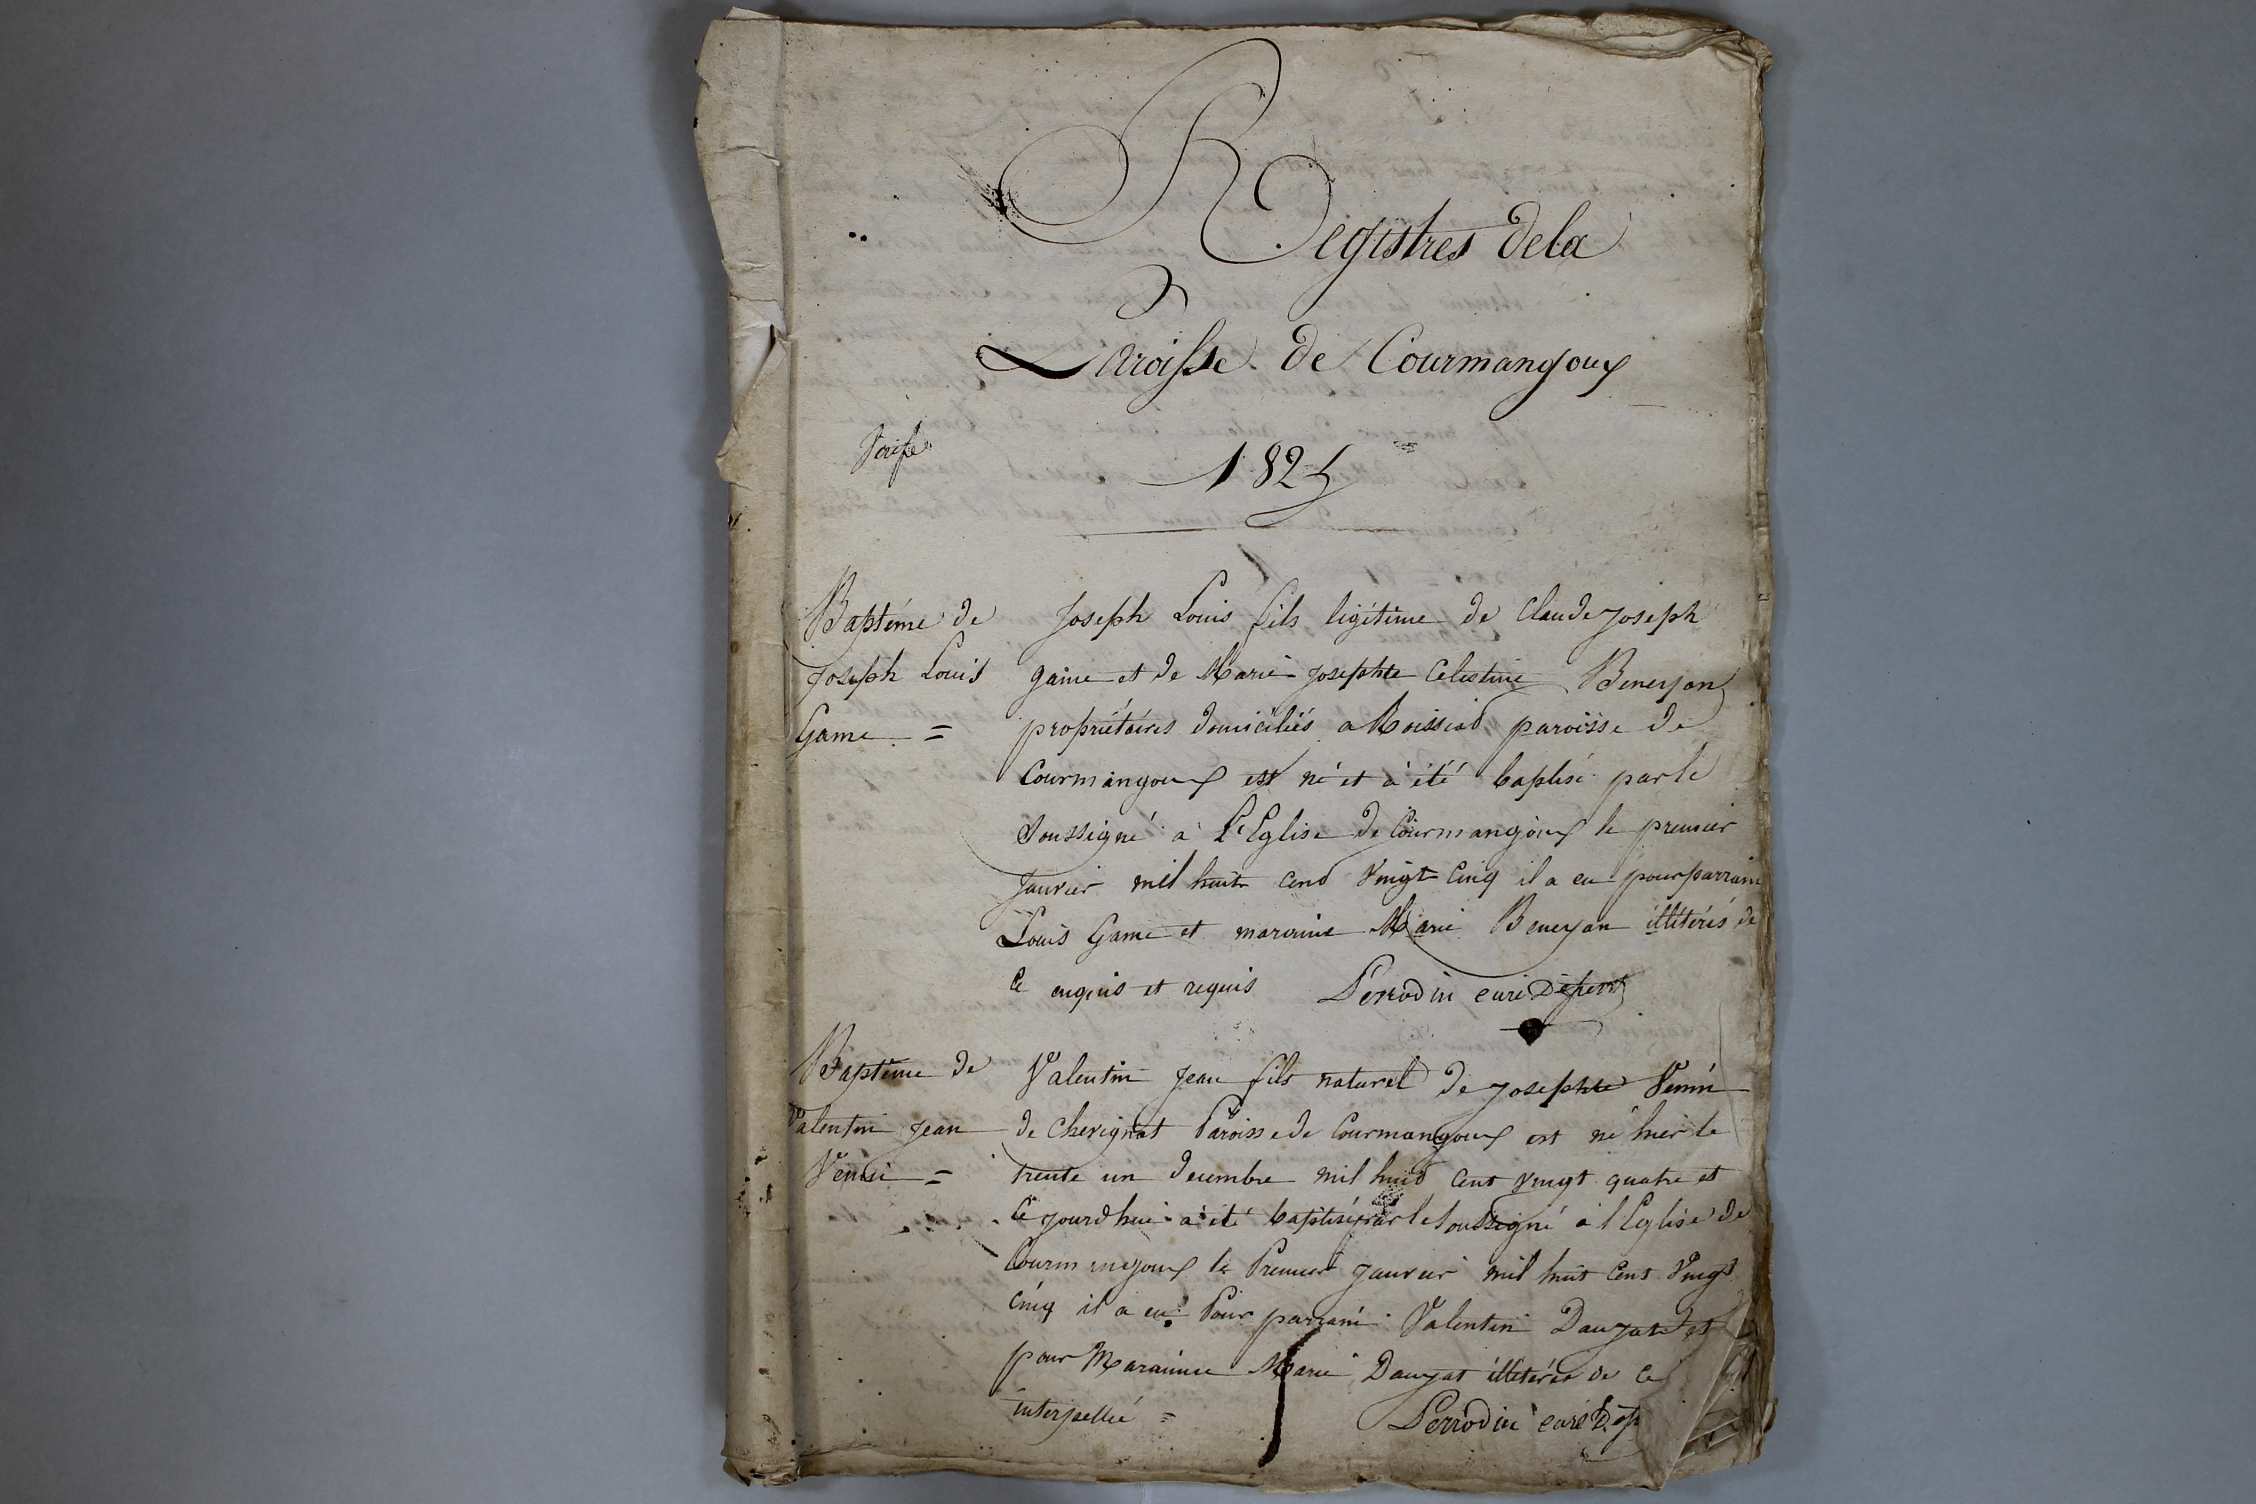 Registres dela
Paroisse de Courmangoux
1825
Baptéme de
Joseph Louis
Game =
Joseph Louis fils légitime de Claude Joseph
game et de Marie Josephte Celestine Beneyon
propriétaires domiciliés a Roissiat paroisse de
Courmangoux est né et à été baptisé par le
Soussigné a L'Eglise de Courmangoux le premier
Janvier mil huit cent vingt cinq il a eu pour parrain
Louis Game et maraine Marie Beneyon illitérés de
ce enquis et requis Perrodin curé Desservt
Baptême de
Valentin Jean
Venin =
Valentin Jean fils naturel de Josephte Venin
de Chevignat Paroisse de Courmangoux est né hier le
trente un decembre mil huit cent vingt quatre et
ce jourdhui a été baptisé par le Soussigné à l'Eglise de
Courmangoux le Premier Janvier mil huit cent vingt
cinq il a eu Pour parrain Valentin Daujat et
pour Maraine Marie Daujat illitérés de ce
interpellé = Perrodin curé D.